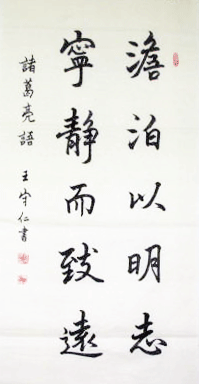 澹泊以明志
寧靜而致遠
諸葛亮語
王守仁書